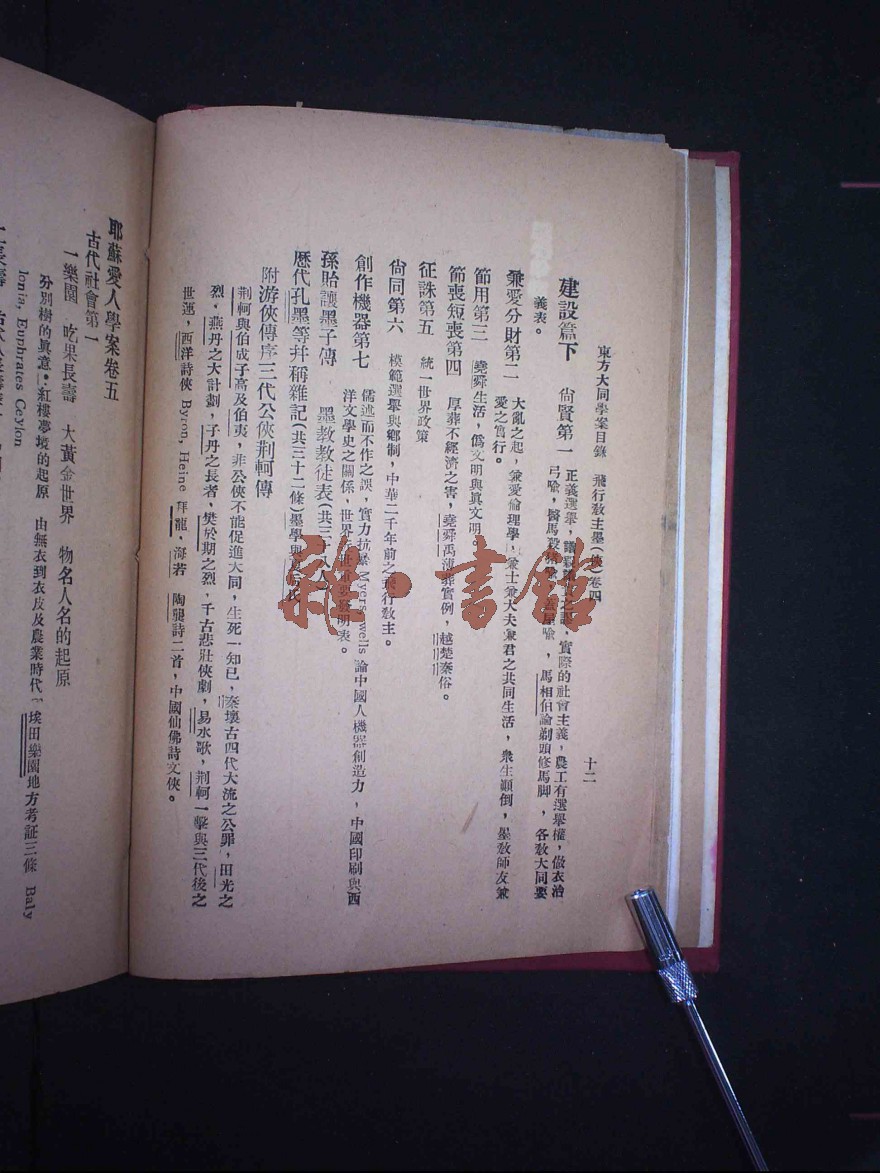 東方大同學案目錄　飛行敎主墨(俠)卷四　十二
建設篇下　尙賢第一　正義選舉，實際的社會主義，農工有選舉權，做衣治
弓喩，醫馬殺喩，馬相伯論剃頭修馬脚，各敎大同要
義表。
兼愛分財第二　大亂之起，兼愛倫理學，兼士兼大夫兼君之共同生活，衆生顚倒，墨敎師友兼
愛之實行。
節用第三　堯舜生活，僞文明與眞文明。
節喪短喪第四　厚葬不經濟之害，堯舜禹薄葬實例，越楚秦俗。
征誅第五　統一世界政策
尙同第六　模範選舉與鄕制，中華二千年前之飛行敎主。
創作機器第七　儒述而不作之誤，實力抗 Myers, wells 論中國人機器創造力，中國印刷與西
洋文學史之關係，世界發明表。
孫貽讓墨子傳　墨敎敎徒表(共三十八人)
歷代孔墨等幷稱雜記(共三十二條)墨學與
附游俠傳序三代公俠荆軻傳
荆軻與伯成子高及伯夷，非公俠不能促進大同，生死一知已，秦壞古四代大流之公罪，田光之
烈，燕丹之大計劃，子丹之長者，樊於期之烈，千古悲壯俠劇，易水歌，荆軻一擊與三代後之
世運，西洋詩俠 Byron, Heine 拜龍，海若　陶龔詩二首，中國仙佛詩文俠。
耶蘇愛人學案卷五
古代社會第一
一樂園　吃果長壽　大黃金世界　物名人名的起原
分別樹的眞意・紅樓夢境的起原　由無衣到衣皮及農業時代，埃田樂園地方考証三條　Baby
lonia, Euphrates Ceylon
雜・書館